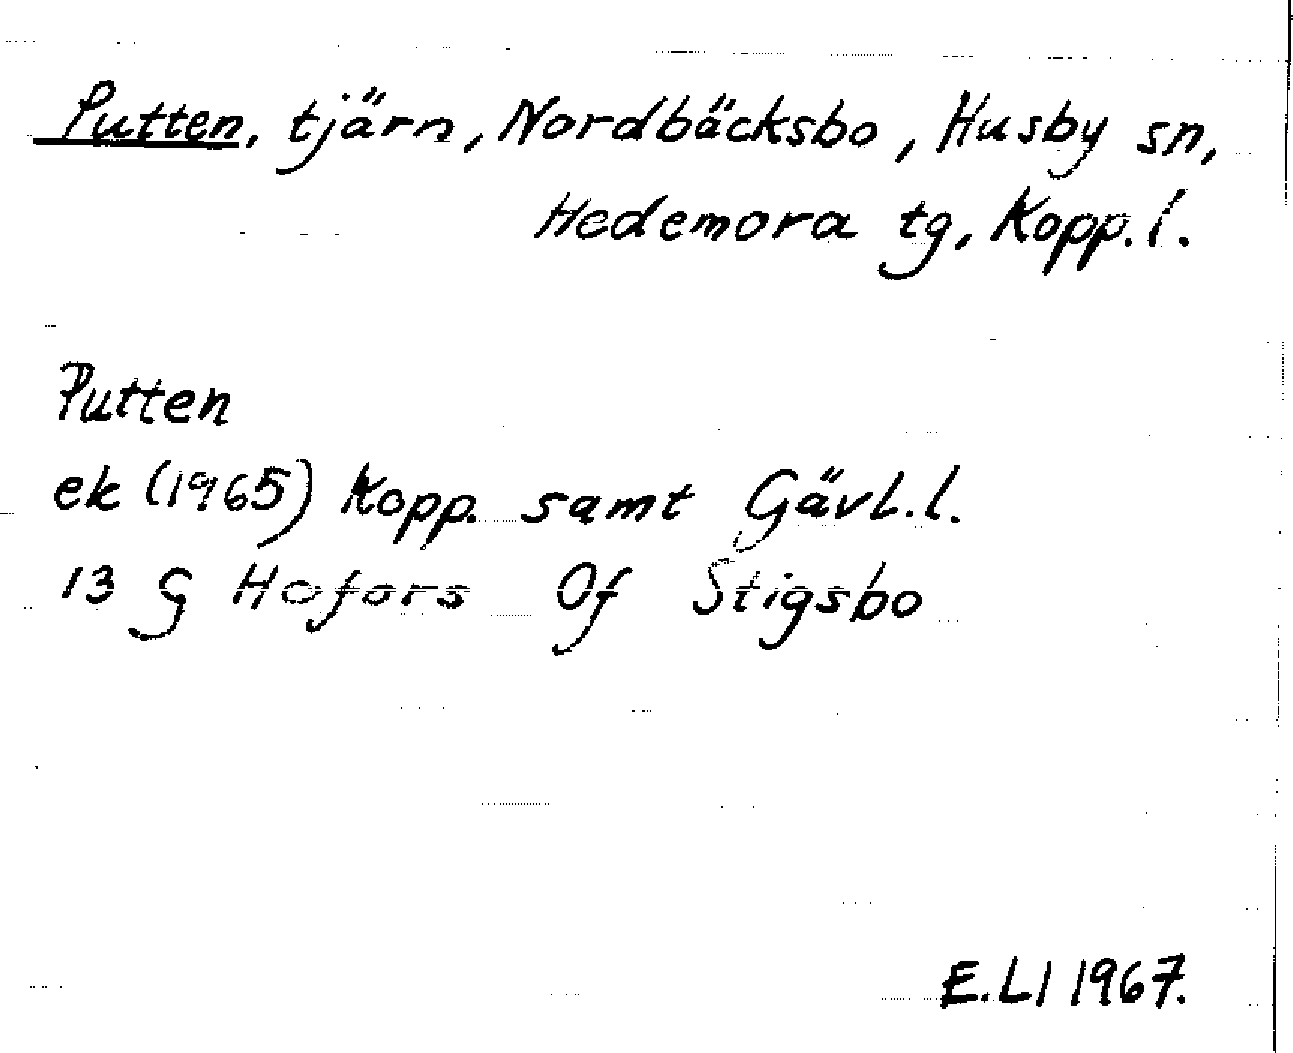 Putten, tjärn, Nordbäcksbo, Husby sn,
Hedemora tg, Kopp. l.
Putten
ek (1965) Kopp. samt Gävl. l.
13 G Hofors Of Stigsbo
E.Ll 1967.